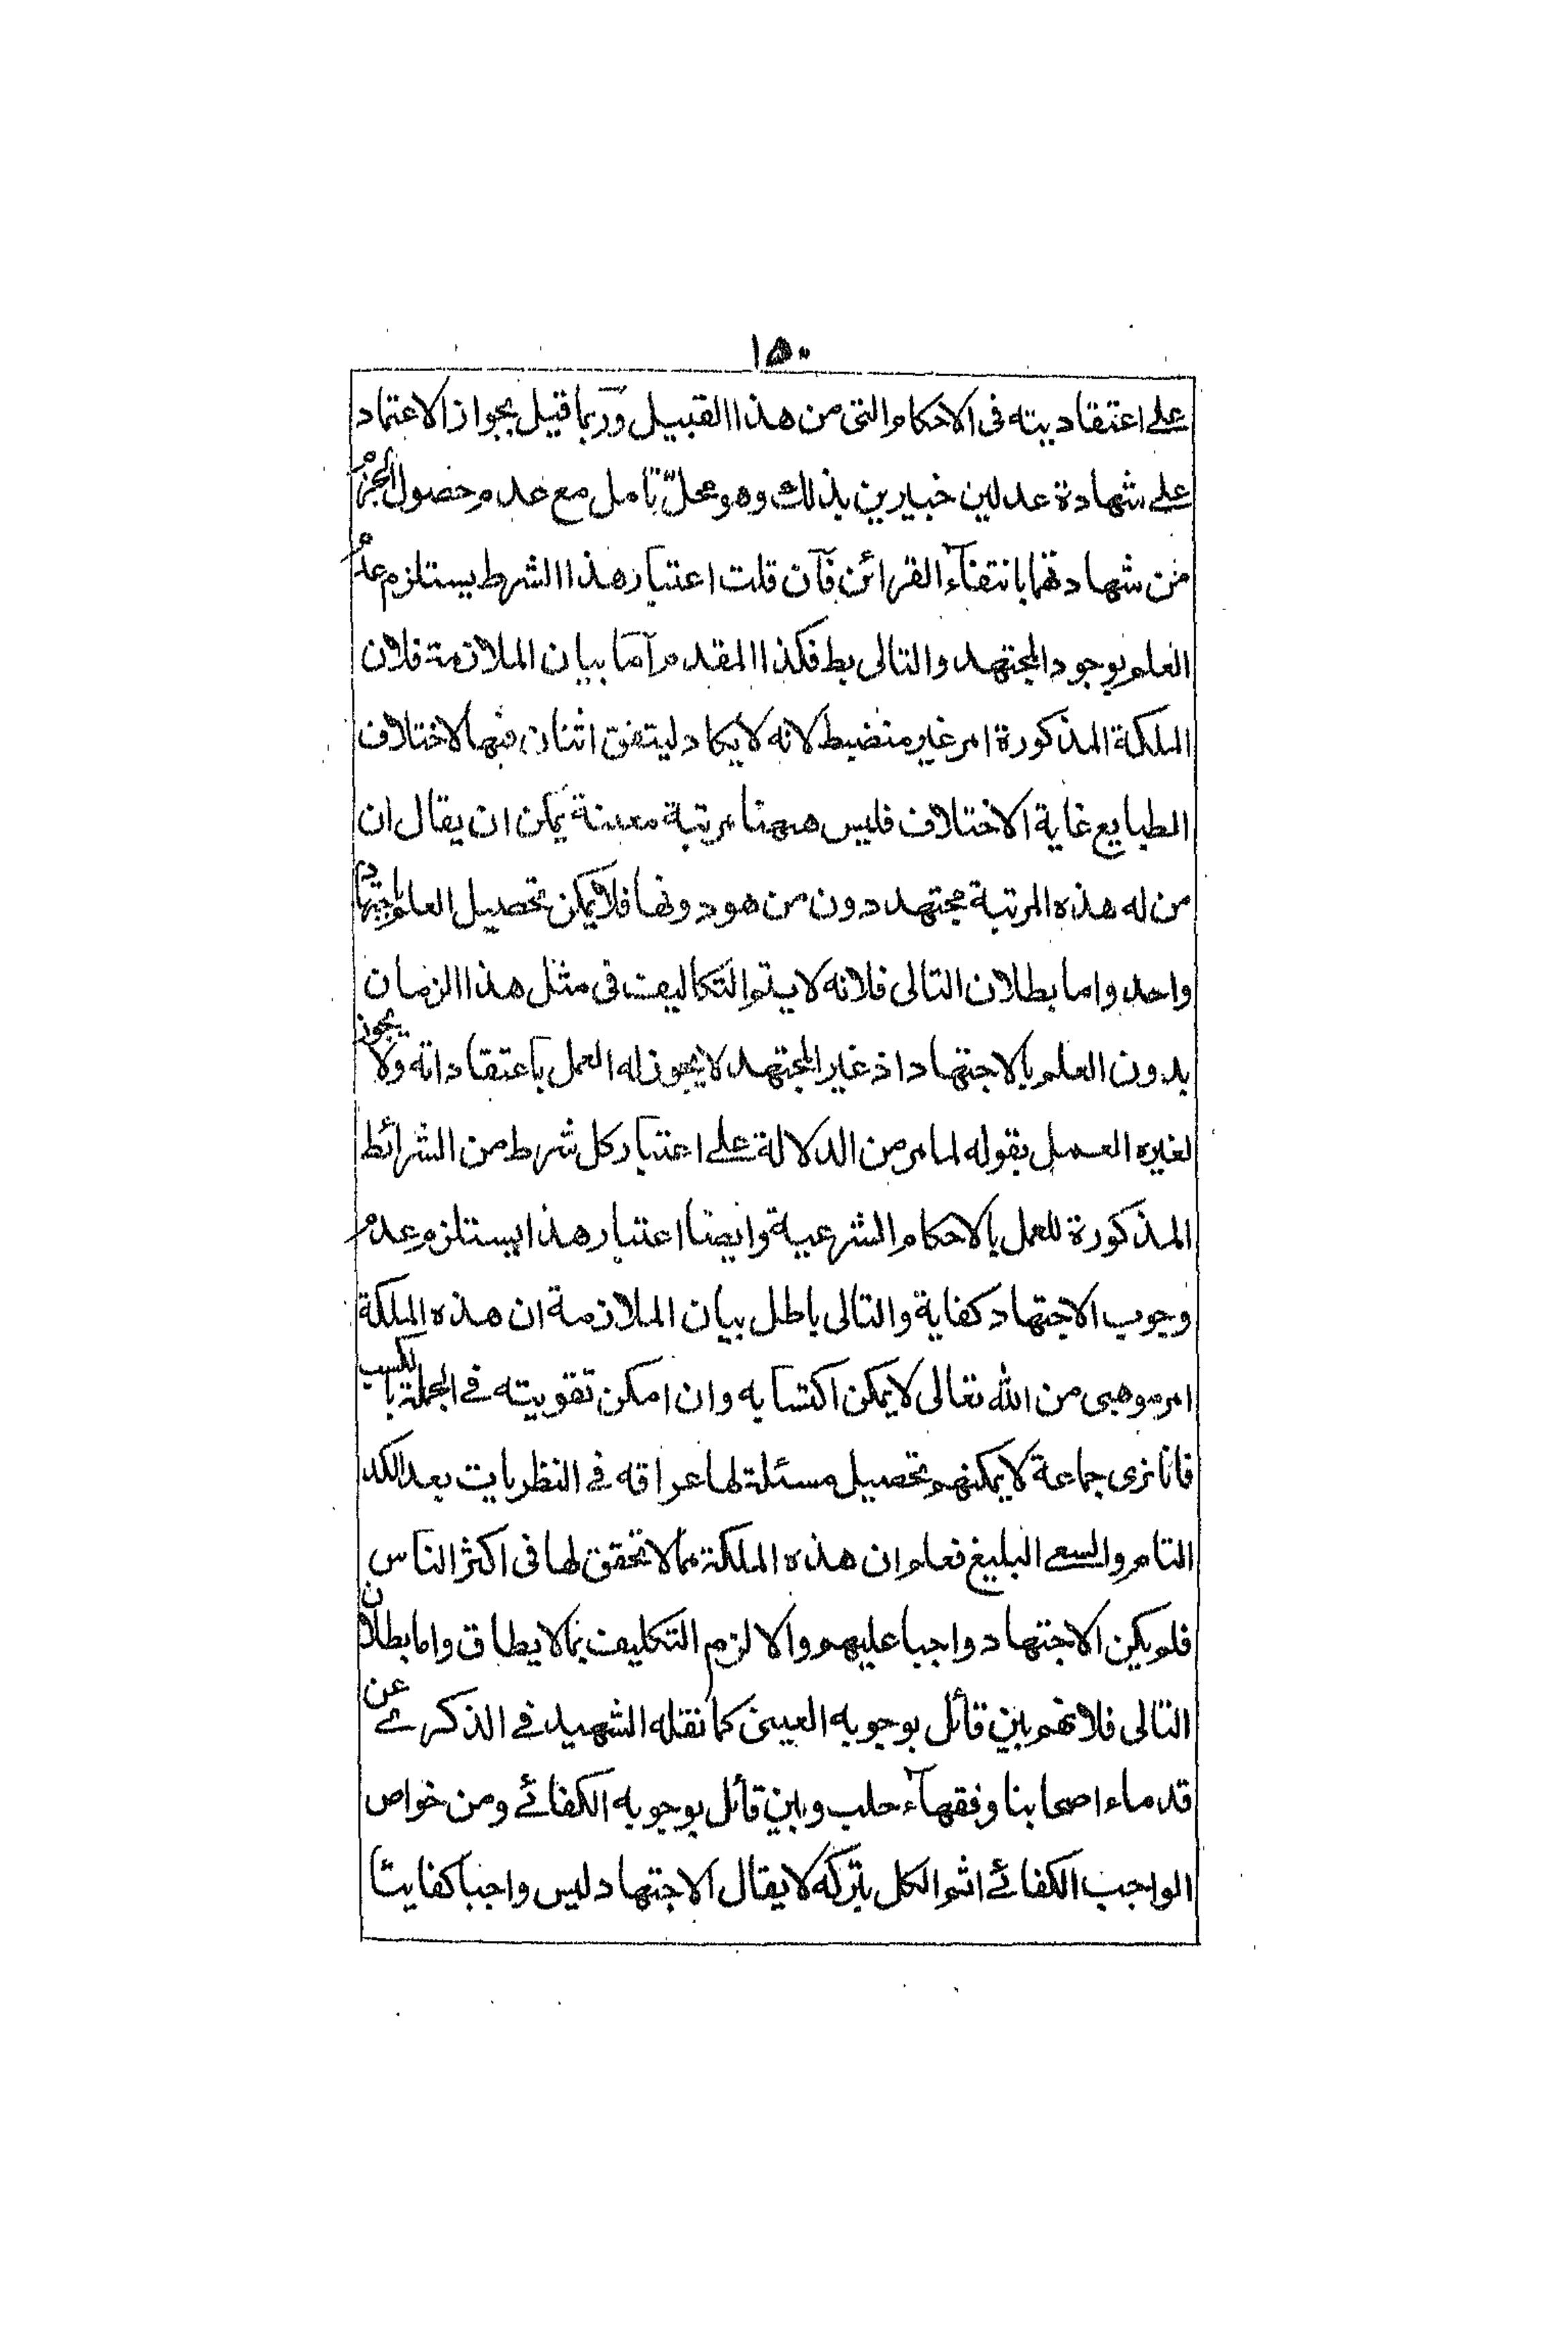 ١٥٠
على اعتقاديته في الاحكام التي من هذا القبيل وربما قيل بجواز الاعتماد
على شهادة عدلين خبيرين بذلك وهو محلّ تامل مع عدم حصول الجزم
من شهادتهما بانتفآء القرائن فآن قلت اعتبار هذا الشرط يستلزم عدم
العلم بوجود المجتهد والتالى بط فكذا المقدم آما بيان الملازمة فلان
الملكة المذكورة امر غير منضبط لانه لا يكاد ليتفق اثنان فيها لاختلاف
الطبايع غاية الاختلاف فليس ههنا مرتبة معينة يمكن ان يقال ان
من له هذه المرتبة مجتهد دون من هو دونها فلا يمكن تحصيل العلم باجتهاد
واحد واما بطلان التالى فلانه لا يتم التكاليف في مثل هذا الزمان
بدون العلم بالاجتهاد اذ غير المجتهد لا يجوز له العمل باعتقاداته ولا يجوز
لغيره العمل بقوله لما مر من الدلالة على اعتبار كل شرط من الشرائط
المذكورة للعمل بالاحكام الشرعية وايضا اعتبار هذا يستلزم عدم
وجوب الاجتهاد كفاية والتالى باطل بيان الملازمة ان هذه الملكة
امر موهبى من الله تعالى لا يمكن اكتسابه وان امكن تقويته في الجملة بالكسب
فانا نرى جماعة لا يمكنهم تحصيل مسئلة لها عراقه في النظريات بعد الكد
التام والسعى البليغ فعلم ان هذه الملكة مما لا تحقق لها فى اكثر الناس
فلم يكن الاجتهاد واجبا عليهم والا لزم التكليف بما لا يطاق واما بطلان
التالى فلانهم بين قائل بوجوبه العينى كما نقله الشهيد في الذكرى عن
قدماء اصحابنا وفقهآء حلب وبين قائل بوجوبه الكفائي ومن خواص
الواجب الكفائي اثم الكل بتركه لا يقال الاجتهاد ليس واجبا كفايتا